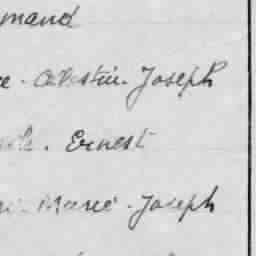 mand
Célestin. Joseph
. Ernest
Marie. Joseph